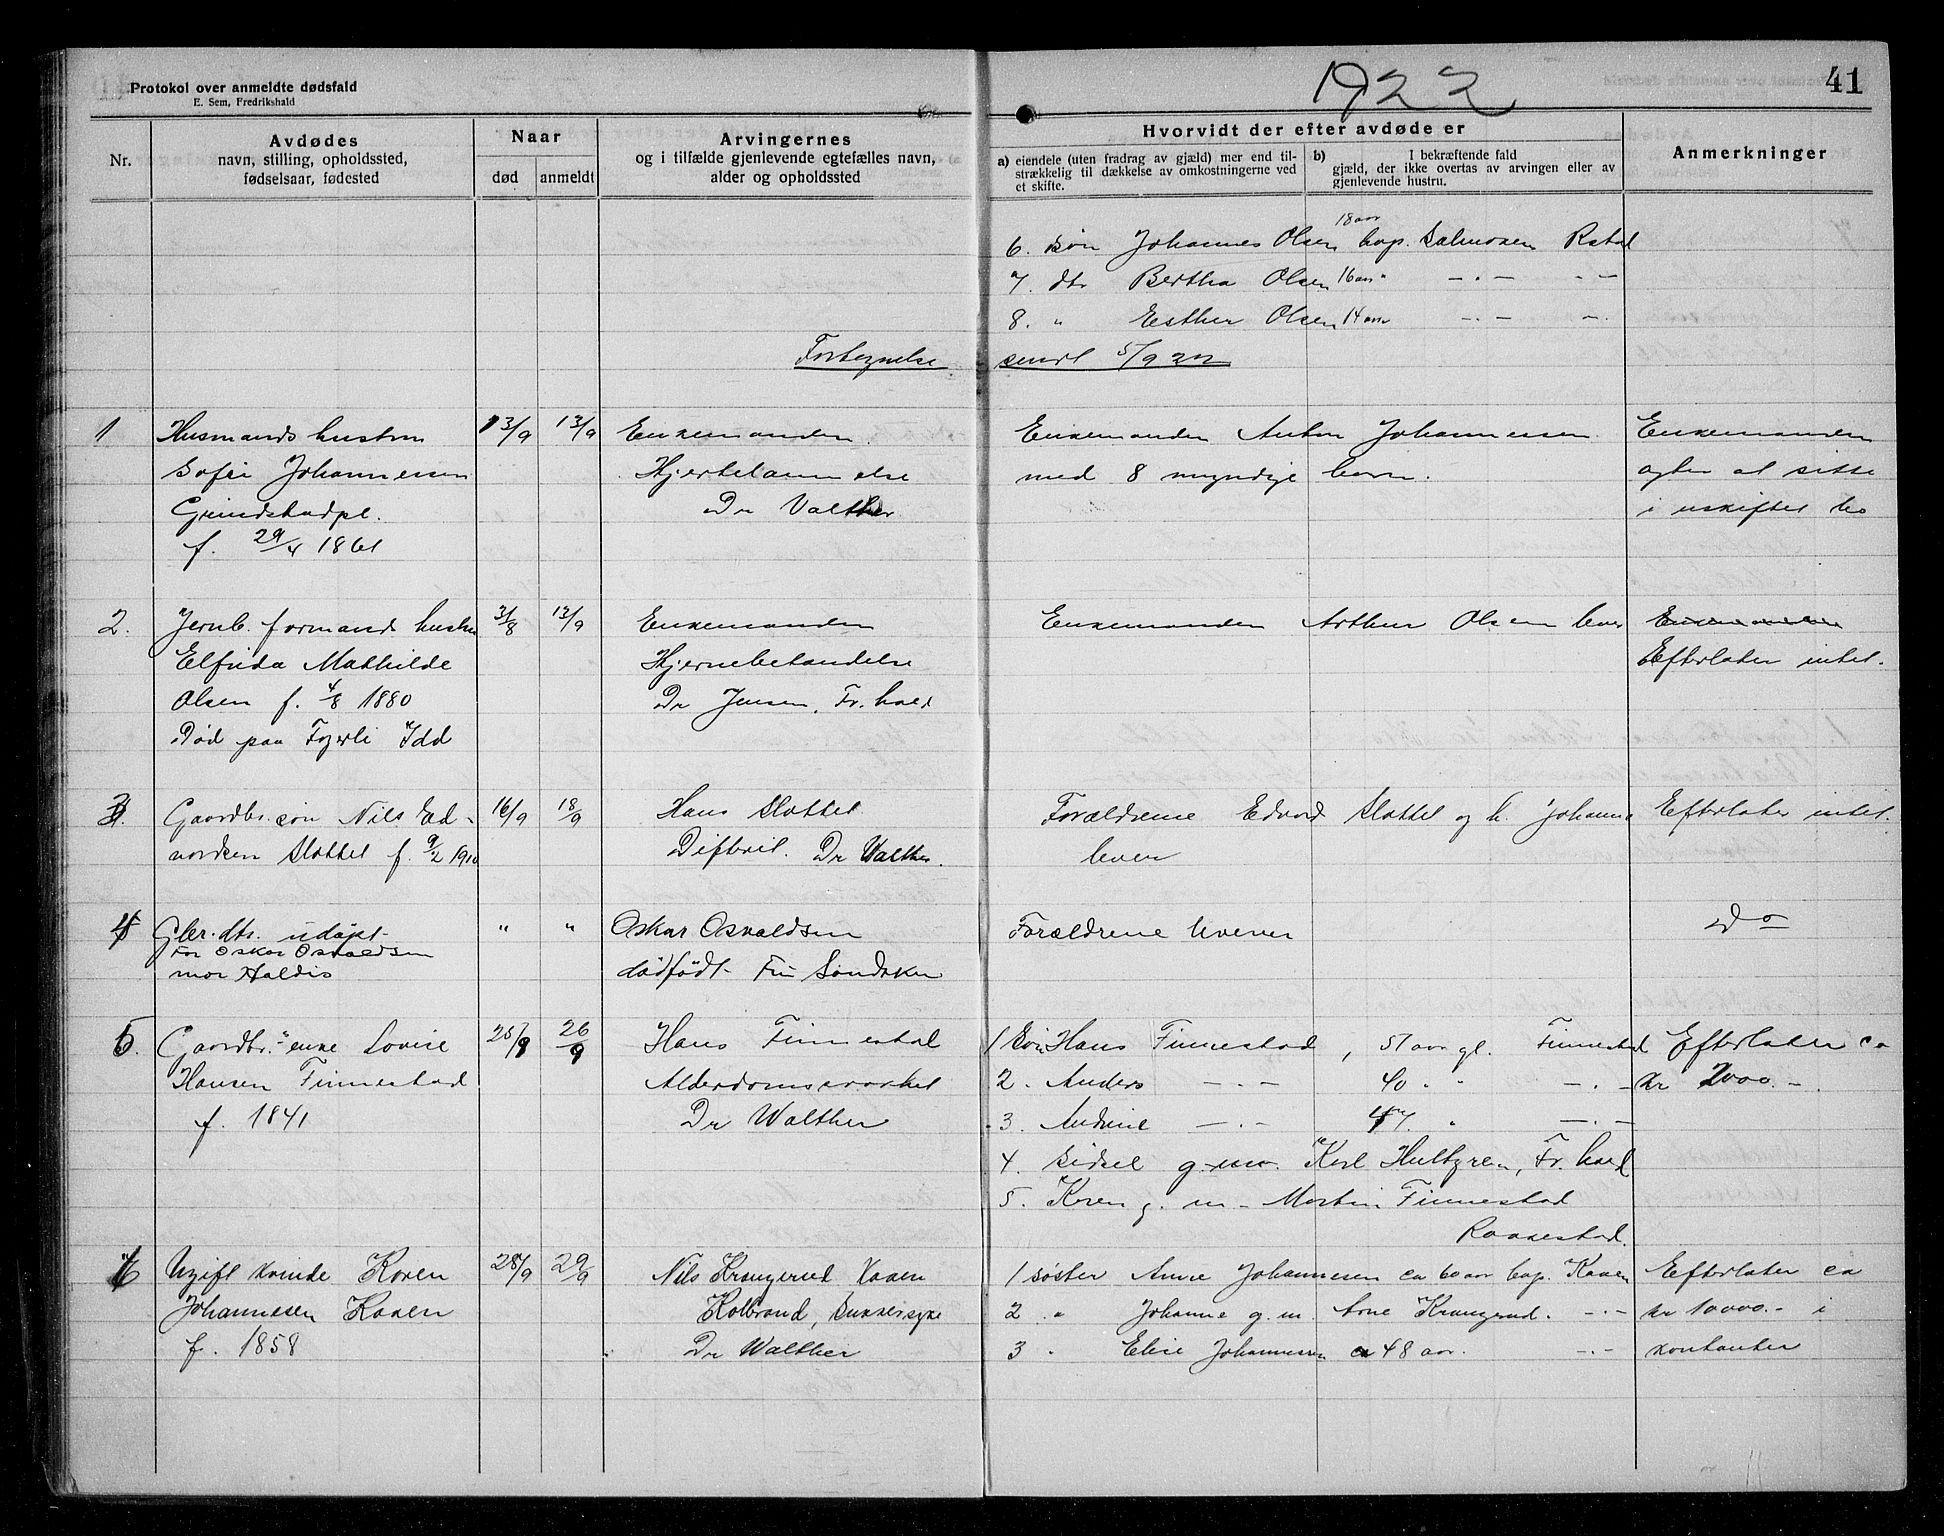 Protokol over anmeldte dødsfald
E. Sem, Fredrikshald
1922
41
Nr.
Avdødes
navn, stilling, opholdssted,
fødselsaar, fødested
Naar
død
anmeldt
Arvingernes
og i tilfælde gjenlevende egtefælles navn,
alder og opholdssted
Hvorvidt der efter avdøde er
a) eiendele (uten fradrag av gjæld) mer end til-
strækkelig til dækkelse av omkostningerne ved
et skifte.
b) I bekræftende fald
gjæld, der ikke overtas av arvingen eller av
gjenlevende hustru.
Anmerkninger
18 aar
6. søn Johannes Olsen bop. Rstad
7. dtr Bertha Olsen 16 aar " — . — . —
8. " Esther Olsen 14 aar — . — —.
Fortegnelse sendt 5/9 22
1 Husmands hustru 13/9 13/9 Enkemanden Enkemanden Anton Johannessen Enkemanden
Sofie Johannessen Hjertelammelse med 8 myndige barn. agter at sitte
Grindstadpl. Dr Walther i uskiftet bo
f. 29/4 1861
2. Jernb. formands hustru 31/8 13/9 Enkemanden Enkemanden Arthur Olsen lever Enkemanden
Elfrida Mathilde Hjernebetændelse Efterlater intet.
Olsen f. 4/8 1880 Dr Jensen, Fr.hald
Død paa Idd
3. Gaardbr. søn Nils Ed- 16/9 18/9 Hans Slottet Forældrene Edvard Slottet og h. Johanna Efterlater intet.
vardsen Slottet f. 9/2 1910 Difterit. Dr Walther. lever
4 Gbr. dtr. udøpt " " Oskar Osvaldsen Forældrene lever Do
Far Oskar Osvaldsen
mor Haldis dødfødt Fru
5. Gaardbr. enke Lovise 25/9 26/9 Hans Finnestad 1 Søn Hans Finnestad, 51 aar gl. Finnestad Efterlater ca
Hansen Finnestad Alderdomssvakhet 2. Anders — . — 40 " " — . — kr 2000. —
f. 1841 Dr Walther 3. Andrine — . — 47. " — . —
4. Sidsel g. m. Karl Hultgren, Fr.hald
5. Karen g. m. Martin Finnestad
6 Ugift kvinde Karen 28/9 29/9 Nils Krangerud Kaaen 1 søster Anne Johannesen ca 60 aar bop. Kaaen Efterlater ca
Johannesen Kaaen Kolbrand, sukkersyke 2 " Johanne g. m. Arne Krangerud. — . — kr 10000.- i
f. 1858 Dr Walther 3 " Elise Johannesen ca 48 aar. — . — kontanter